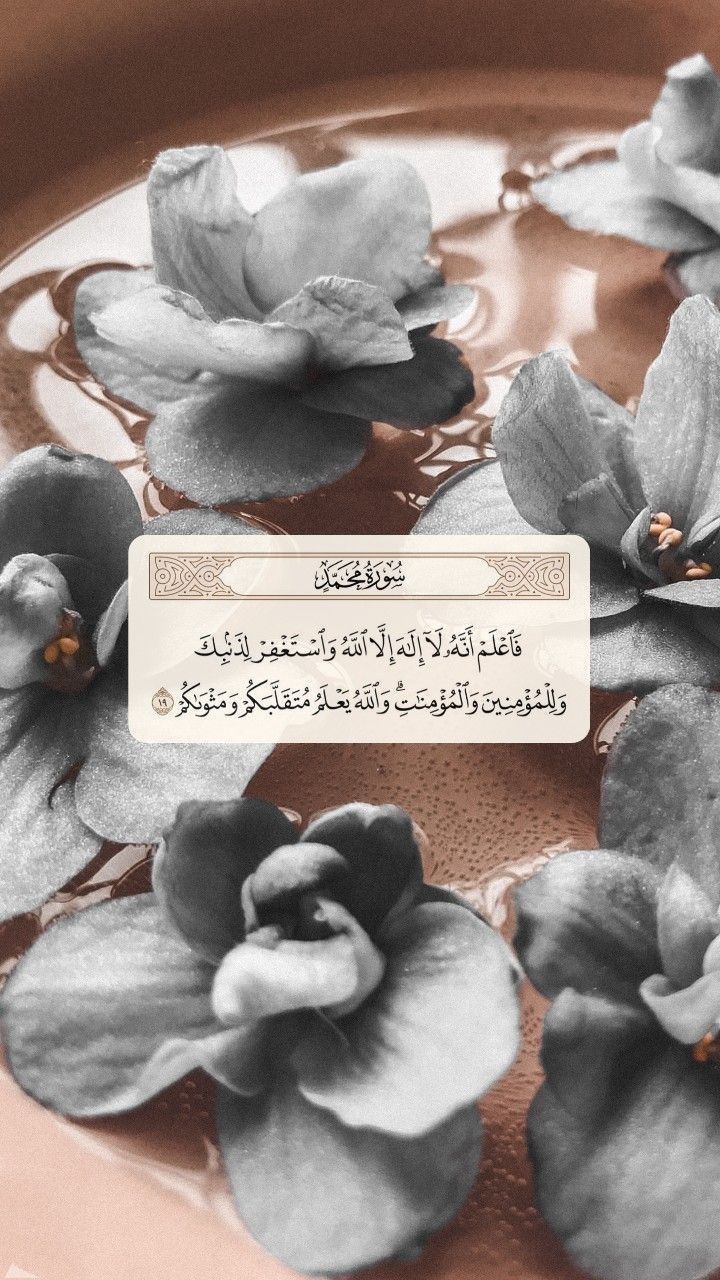 سُورَةُ مُحَمَّدٍ
فَٱعۡلَمۡ أَنَّهُۥ لَآ إِلَٰهَ إِلَّا ٱللَّهُ وَٱسۡتَغۡفِرۡ لِذَنۢبِكَ
وَلِلۡمُؤۡمِنِينَ وَٱلۡمُؤۡمِنَٰتِۗ وَٱللَّهُ يَعۡلَمُ مُتَقَلَّبَكُمۡ وَمَثۡوَىٰكُمۡ ١٩